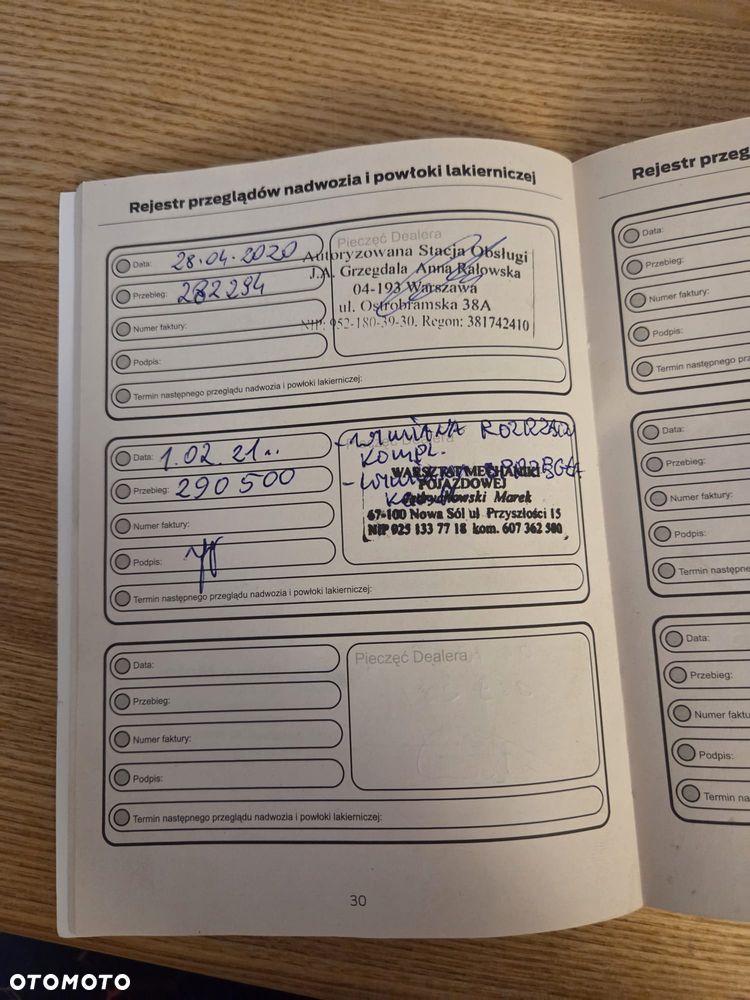 Rejestr przeglądów nadwozia i powłoki lakierniczej
Data: 28.04.2020
Przebieg: 282294
Numer faktury:
Podpis:
Termin następnego przeglądu nadwozia i powłoki lakierniczej:
Pieczęć Dealera
Autoryzowana Stacja Obsługi
J.A. Grzegdala Anna Ralowska
04-193 Warszawa
ul. Ostrobramska 38A
NIP: 952-180-39-30. Regon: 381742410
Data: 1.02.21..
Przebieg: 290 500
Numer faktury:
Podpis:
Termin następnego przeglądu nadwozia i powłoki lakierniczej:
- WYMIANA ROZRZĄDU
KOMPL.
WARSZTAT MECHANIKI
POJAZDOWEJ
Marek
67-100 Nowa Sól ul Przyszłości 15
NIP 925 133 77 18 kom. 607 362 500
Data:
Przebieg:
Numer faktury:
Podpis:
Termin następnego przeglądu nadwozia i powłoki lakierniczej:
Pieczęć Dealera
30
Rejestr przeg
Data:
Przebieg:
Numer faktury:
Podpis:
Termin następnego prz
Data:
Przebieg:
Numer faktury:
Podpis:
Termin następne
Data:
Przebieg:
Numer faktu
Podpis:
Termin na
OTOMOTO